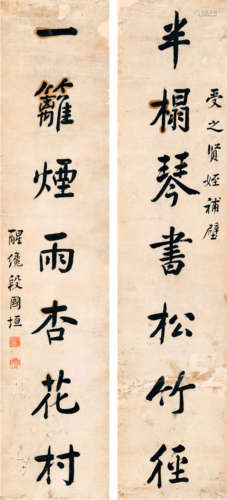 受之贤姪補壁
半榻琴書松竹徑
一籬煙雨杏花村
醒儂段國垣